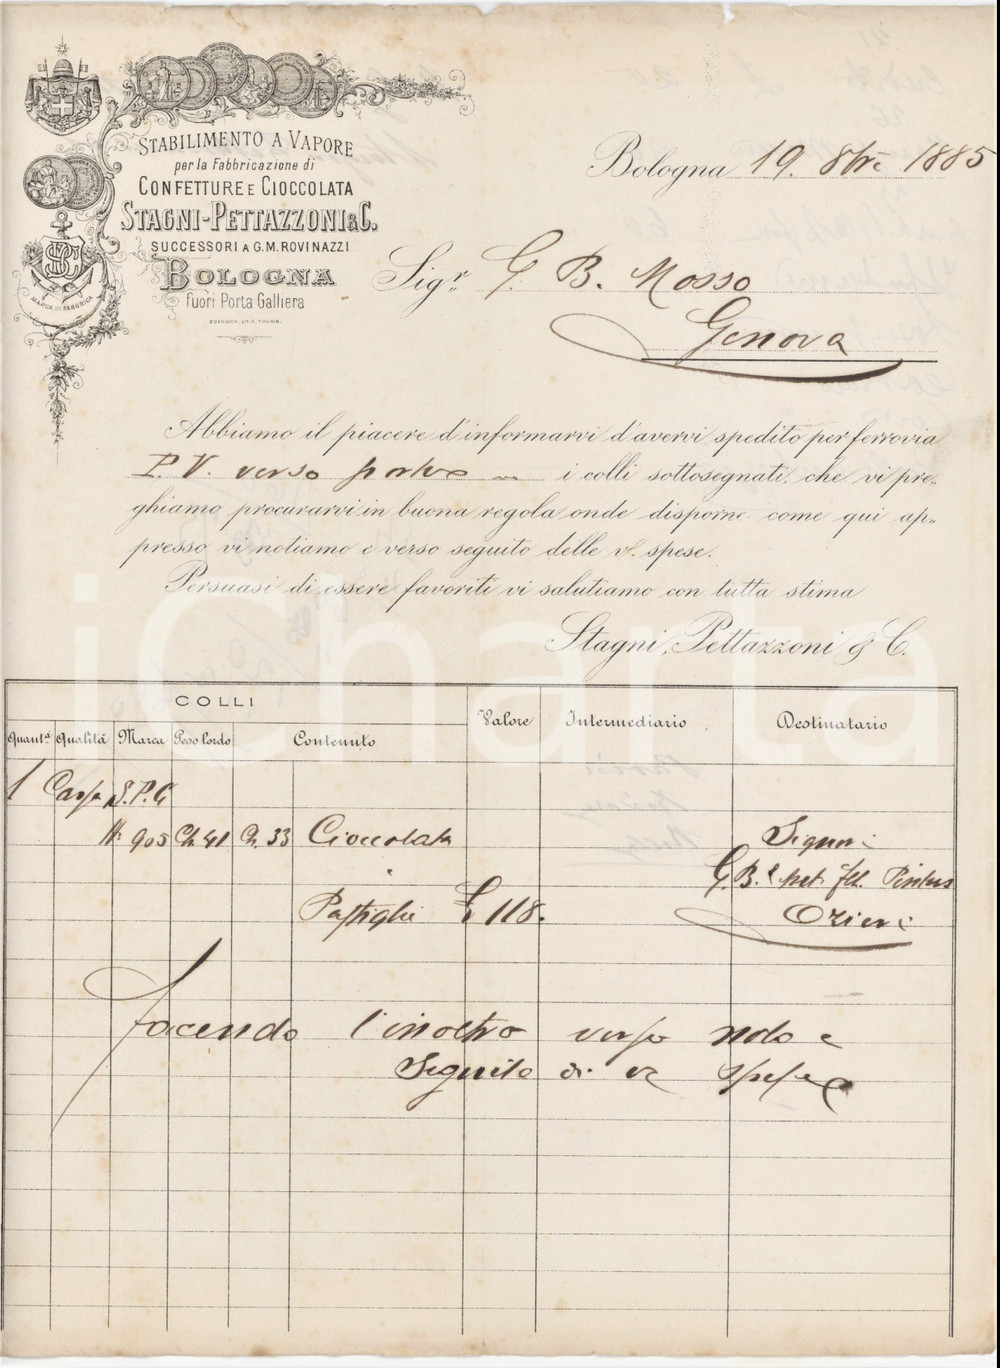 STABILIMENTO A VAPORE
per la Fabbricazione di
CONFETTURE E CIOCCOLATA
STAGNI-PETTAZZONI & C.
SUCCESSORI A G. M. ROVINAZZI
BOLOGNA
Fuori Porta Galliera
BOLOGNA, LIT. C. THUMB.
MARCA DI FABBRICA
Bologna 19. 8bre 1885
Sigr. G. B. Mosso
Genova
Abbiamo il piacere d'informarvi d'avervi spedito per ferrovia
P. V. verso porto i colli sottosegnati, che vi pre-
ghiamo procurarvi in buona regola onde disporne come qui ap-
presso vi notiamo e verso seguito delle v. spese.
Persuasi di essere favoriti vi salutiamo con tutta stima
Stagni, Pettazzoni & C.
iCharta
COLLI
Quantà Qualità Marca Peso lordo Contenuto Valore Intermediario Destinatario
1 Cassa S.P.C
N: 905 Ch. 41 Ch. 33 Cioccolata Signori
G. B. Pintus
Pastiglie £ 118. Ozieri
facendo l'inoltro verso nolo e
seguito di ve spese